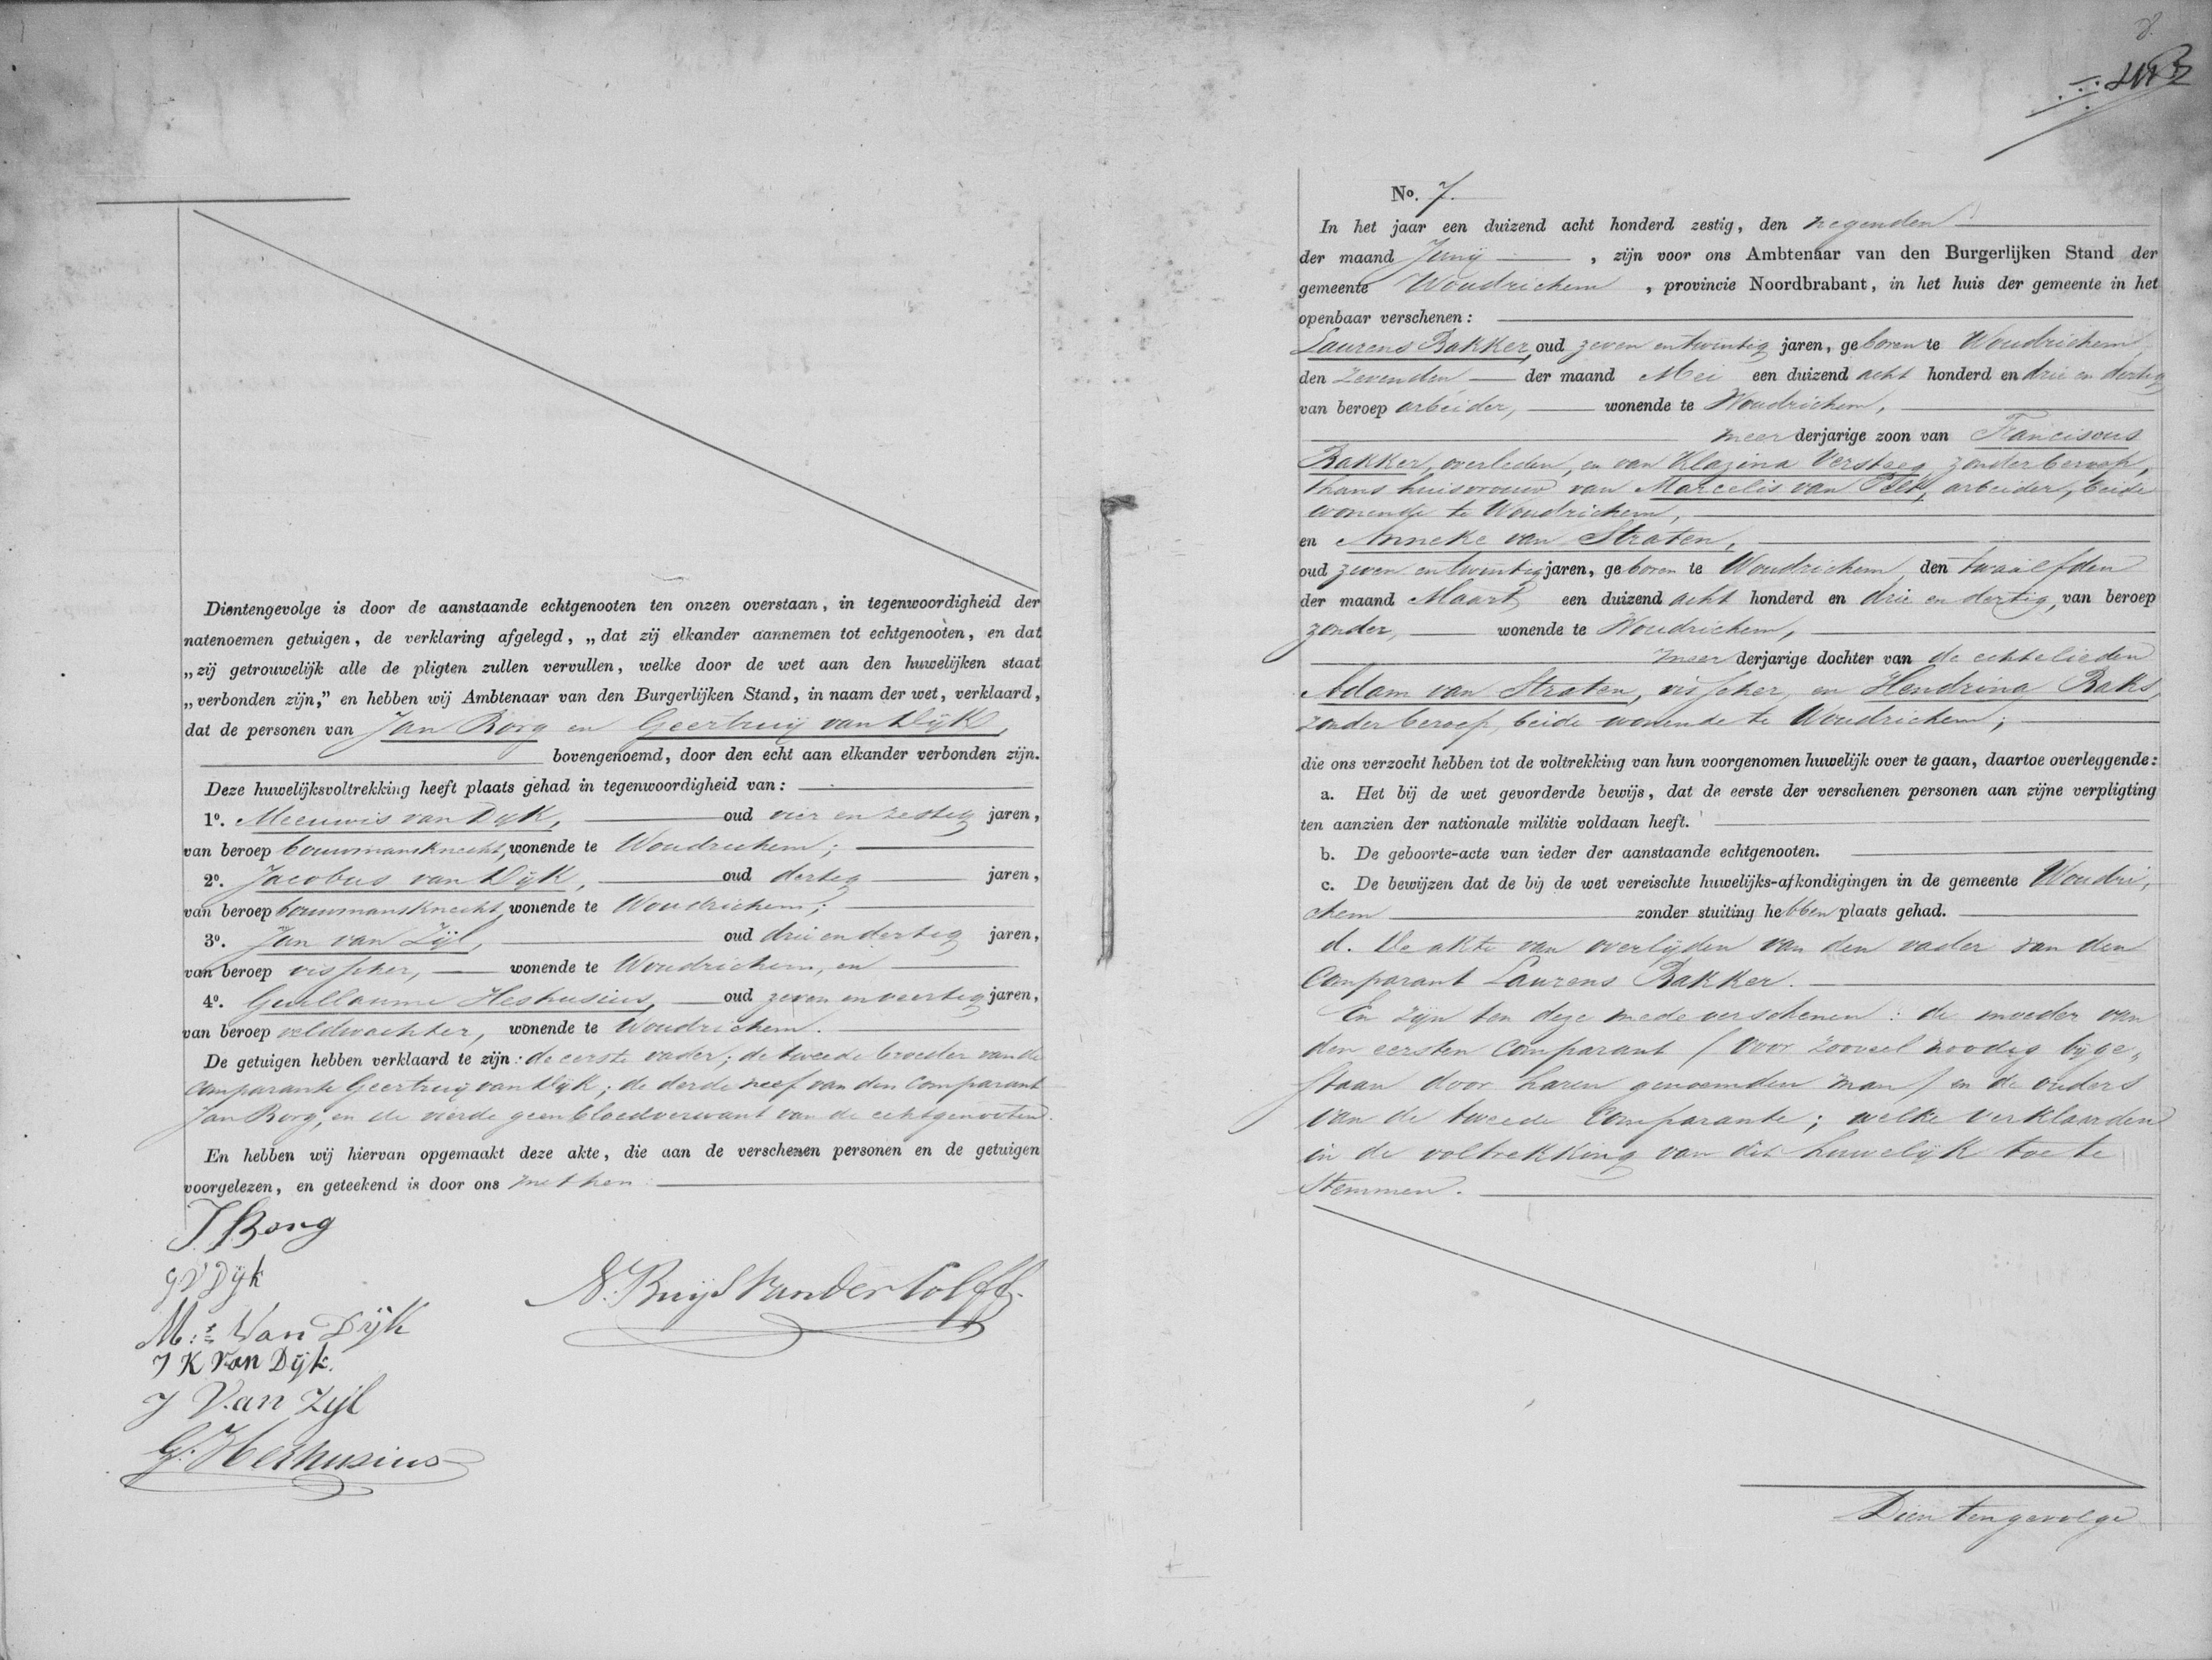 Dientengevolge is door de aanstaande echtgenooten ten onzen overstaan, in tegenwoordigheid der
natenoemen getuigen, de verklaring afgelegd, „dat zij elkander aannemen tot echtgenooten, en dat
„zij getrouwelijk alle de pligten zullen vervullen, welke door de wet aan den huwelijken staat
„verbonden zijn,” en hebben wij Ambtenaar van den Burgerlijken Stand, in naam der wet, verklaard,
dat de personen van Jan Borg en Geertruij van Dijk,
bovengenoemd, door den echt aan elkander verbonden zijn.
Deze huwelijksvoltrekking heeft plaats gehad in tegenwoordigheid van:
1º. Meeuwis van Dijk, oud vier en zestig jaren,
van beroep bouwmansknecht, wonende te Woudrichem;
2º. Jacobus van Dijk, oud dertig jaren,
van beroep bouwmansknecht, wonende te Woudrichem;
3º. Jan van Zijl, oud drie en dertig jaren,
van beroep visscher, wonende te Woudrichem, en
4º. Guillaume Heshusius, oud zeven en veertig jaren,
van beroep veldwachter, wonende te Woudrichem.
De getuigen hebben verklaard te zijn: de eerste vader; de tweede broeder van de
Comparante Geertruij van Dijk; de derde neef van den Comparant
Jan Borg; en de vierde geen bloedverwant van de echtgenooten.
En hebben wij hiervan opgemaakt deze akte, die aan de verschenen personen en de getuigen
voorgelezen, en geteekend is door ons met hen.
J Borg
G V Dijk
M:s Van Dijk
J K Van Dijk.
J Van Zijl
G. Heshusius
N. Ruijs van der Colff
8.
No. 7.
In het jaar een duizend acht honderd zestig, den negenden
der maand Junij, zijn voor ons Ambtenaar van den Burgerlijken Stand der
gemeente Woudrichem, provincie Noordbrabant, in het huis der gemeente in het
openbaar verschenen:
Laurens Bakker, oud zeven en twintig jaren, geboren te Woudrichem
den zevenden der maand Mei een duizend acht honderd en drie en dertig
van beroep arbeider, wonende te Woudrichem,
meerderjarige zoon van Franciscus
Bakker, overleden, en van Klazina Versteeg, zonder beroep,
thans huisvrouw van Marcelis van Pelt, arbeider, beide
wonende te Woudrichem,
en Anneke van Straten,
oud zeven en twintig jaren, geboren te Woudrichem, den twaalfden
der maand Maart een duizend acht honderd en drie en dertig, van beroep
zonder, wonende te Woudrichem,
meerderjarige dochter van de echtelieden
Adam van Straten, visscher, en Hendrina Baks,
zonder beroep, beide wonende te Woudrichem;
die ons verzocht hebben tot de voltrekking van hun voorgenomen huwelijk over te gaan, daartoe overleggende:
a. Het bij de wet gevorderde bewijs, dat de eerste der verschenen personen aan zijne verpligting
ten aanzien der nationale militie voldaan heeft.
b. De geboorte-acte van ieder der aanstaande echtgenooten.
c. De bewijzen dat de bij de wet vereischte huwelijks-afkondigingen in de gemeente Woudri„
chem zonder stuiting hebben plaats gehad.
d. De akte van overlijden van den vader van den
Comparant Laurens Bakker.
En zijn ten deze mede verschenen: de moeder van
den eersten Comparant (voor zooveel noodig bijge„
staan door haren genoemden man) en de ouders
van de tweede Comparante; welke verklaarden
in de voltrekking van dit huwelijk toe te
stemmen.
Dientengevolge